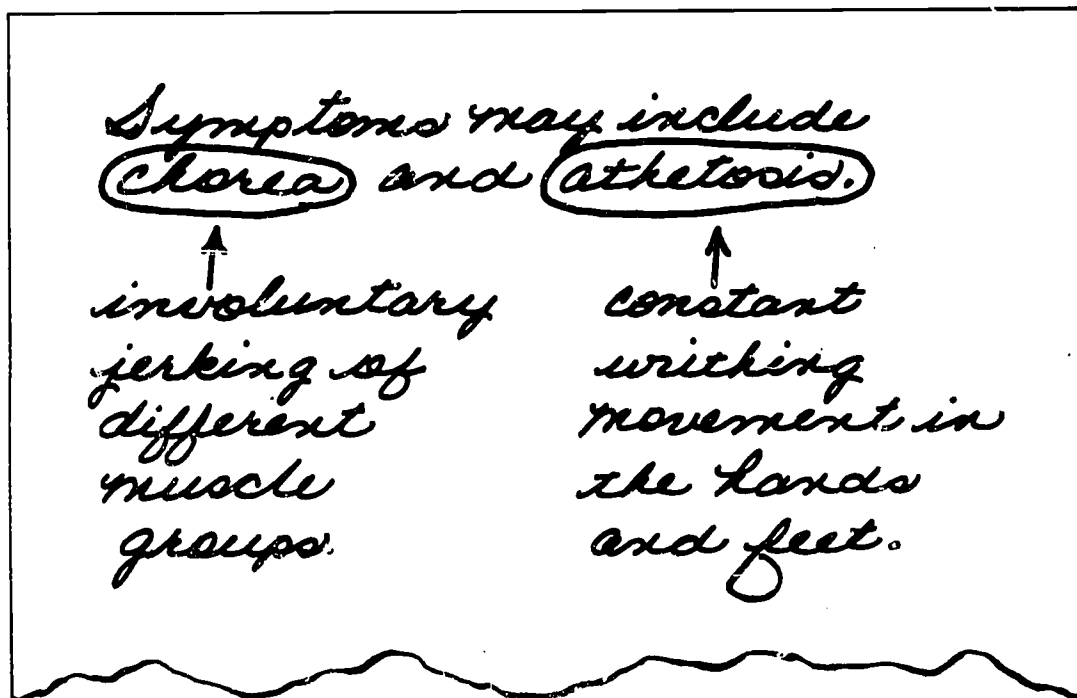 Symptoms may include
chorea and athetosis.
involuntary
jerking of
different
muscle
groups.
constant
writhing
movement in
the hands
and feet.